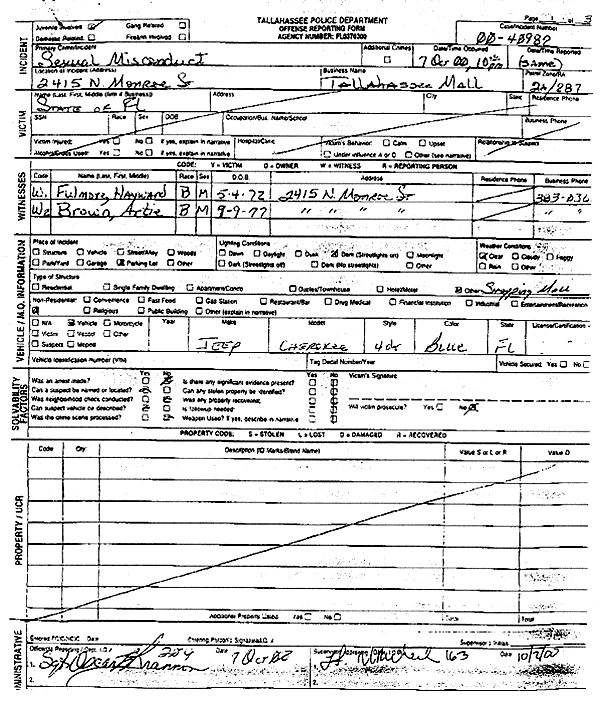 Page 1 of 3
TALLAHASSEE POLICE DEPARTMENT
OFFENSE REPORTING FORM
AGENCY NUMBER: FL0370300
Juvenile Involved
Gang Related
Domestic Related
Firearm Involved
Case/Incident Number
00-40982
INCIDENT
Primary Crime/Incident
Sexual Misconduct
Additional Crimes
Date/Time Occurred
7 Oct 00, 10
Date/Time Reported
(SAME)
Location of Incident (Address)
2415 N. Monroe St
Business Name
Tallahassee Mall
Patrol Zone/RA
2A/287
VICTIM
Name (Last, First, Middle) (Firm if Business)
State of FL
Address
City
State
Residence Phone
SSN
Race
Sex
DOB
Occupation/Bus. Name/School
Business Phone
Victim Injured: Yes No If yes, explain in narrative
Hospital/Clinic
Victim's Behavior: Calm Upset
Relationship to Suspect
Alcohol/Drugs Used: Yes No If yes, explain in narrative
Under influence A or D Other (see narrative)
CODE: V = VICTIM O = OWNER W = WITNESS R = REPORTING PERSON
WITNESSES
Code Name (Last, First, Middle) Race Sex D.O.B. Address Residence Phone Business Phone
W1 Fulmore, Hayward B M 5-4-72 2415 N. Monroe St
W2 Brown, Artie B M 9-9-77 " " " " "
VEHICLE / M.O. INFORMATION
Place of Incident
Structure Vehicle Street/Alley Woods
Park/Yard Garage Parking Lot Other
Lighting Conditions
Dawn Daylight Dusk Dark (Streetlights on) Moonlight
Dark (Streetlights off) Dark (No streetlights) Other
Weather Conditions
Clear Cloudy Foggy
Rain Other
Type of Structure
Residential Single Family Dwelling Apartment/Condo Duplex/Townhouse Hotel/Motel Other Shopping Mall
Non-Residential: Convenience Fast Food Gas Station Restaurant/Bar Drug Medical Financial Institution Industrial Entertainment/Recreation
Religious Public Building Other (explain in narrative)
N/A Vehicle Motorcycle
Victim Vessel Other
Suspect Moped
Year Make Model Style Color State License/Certification
JEEP CHEROKEE 4dr Blue FL
Vehicle Identification Number (VIN)
Tag Decal Number/Year
Vehicle Secured: Yes No
SOLVABILITY FACTORS
Yes No
Was an arrest made?
Can a suspect be named or located?
Was neighborhood check conducted?
Can suspect vehicle be described?
Was the crime scene processed?
Yes No
Is there any significant evidence present?
Can any stolen property be identified?
Was any property recovered?
Is followup needed?
Weapon Used? If yes, describe in narrative
Victim's Signature
Will victim prosecute? Yes No
PROPERTY CODE: S = STOLEN L = LOST D = DAMAGED R = RECOVERED
PROPERTY / UCR
Code Qty. Description (ID Marks/Brand Name) Value S or L or R Value D
Additional Property Listed Yes No
Totals
Total
ADMINISTRATIVE
Entered FCIC/NCIC Date
Entering Person's Signature/I.D. #
Supervisor Initials
Date
1. Sgt. Oscar Brannon 224 7 Oct 00
1. 163 10/7/00
2.
2.